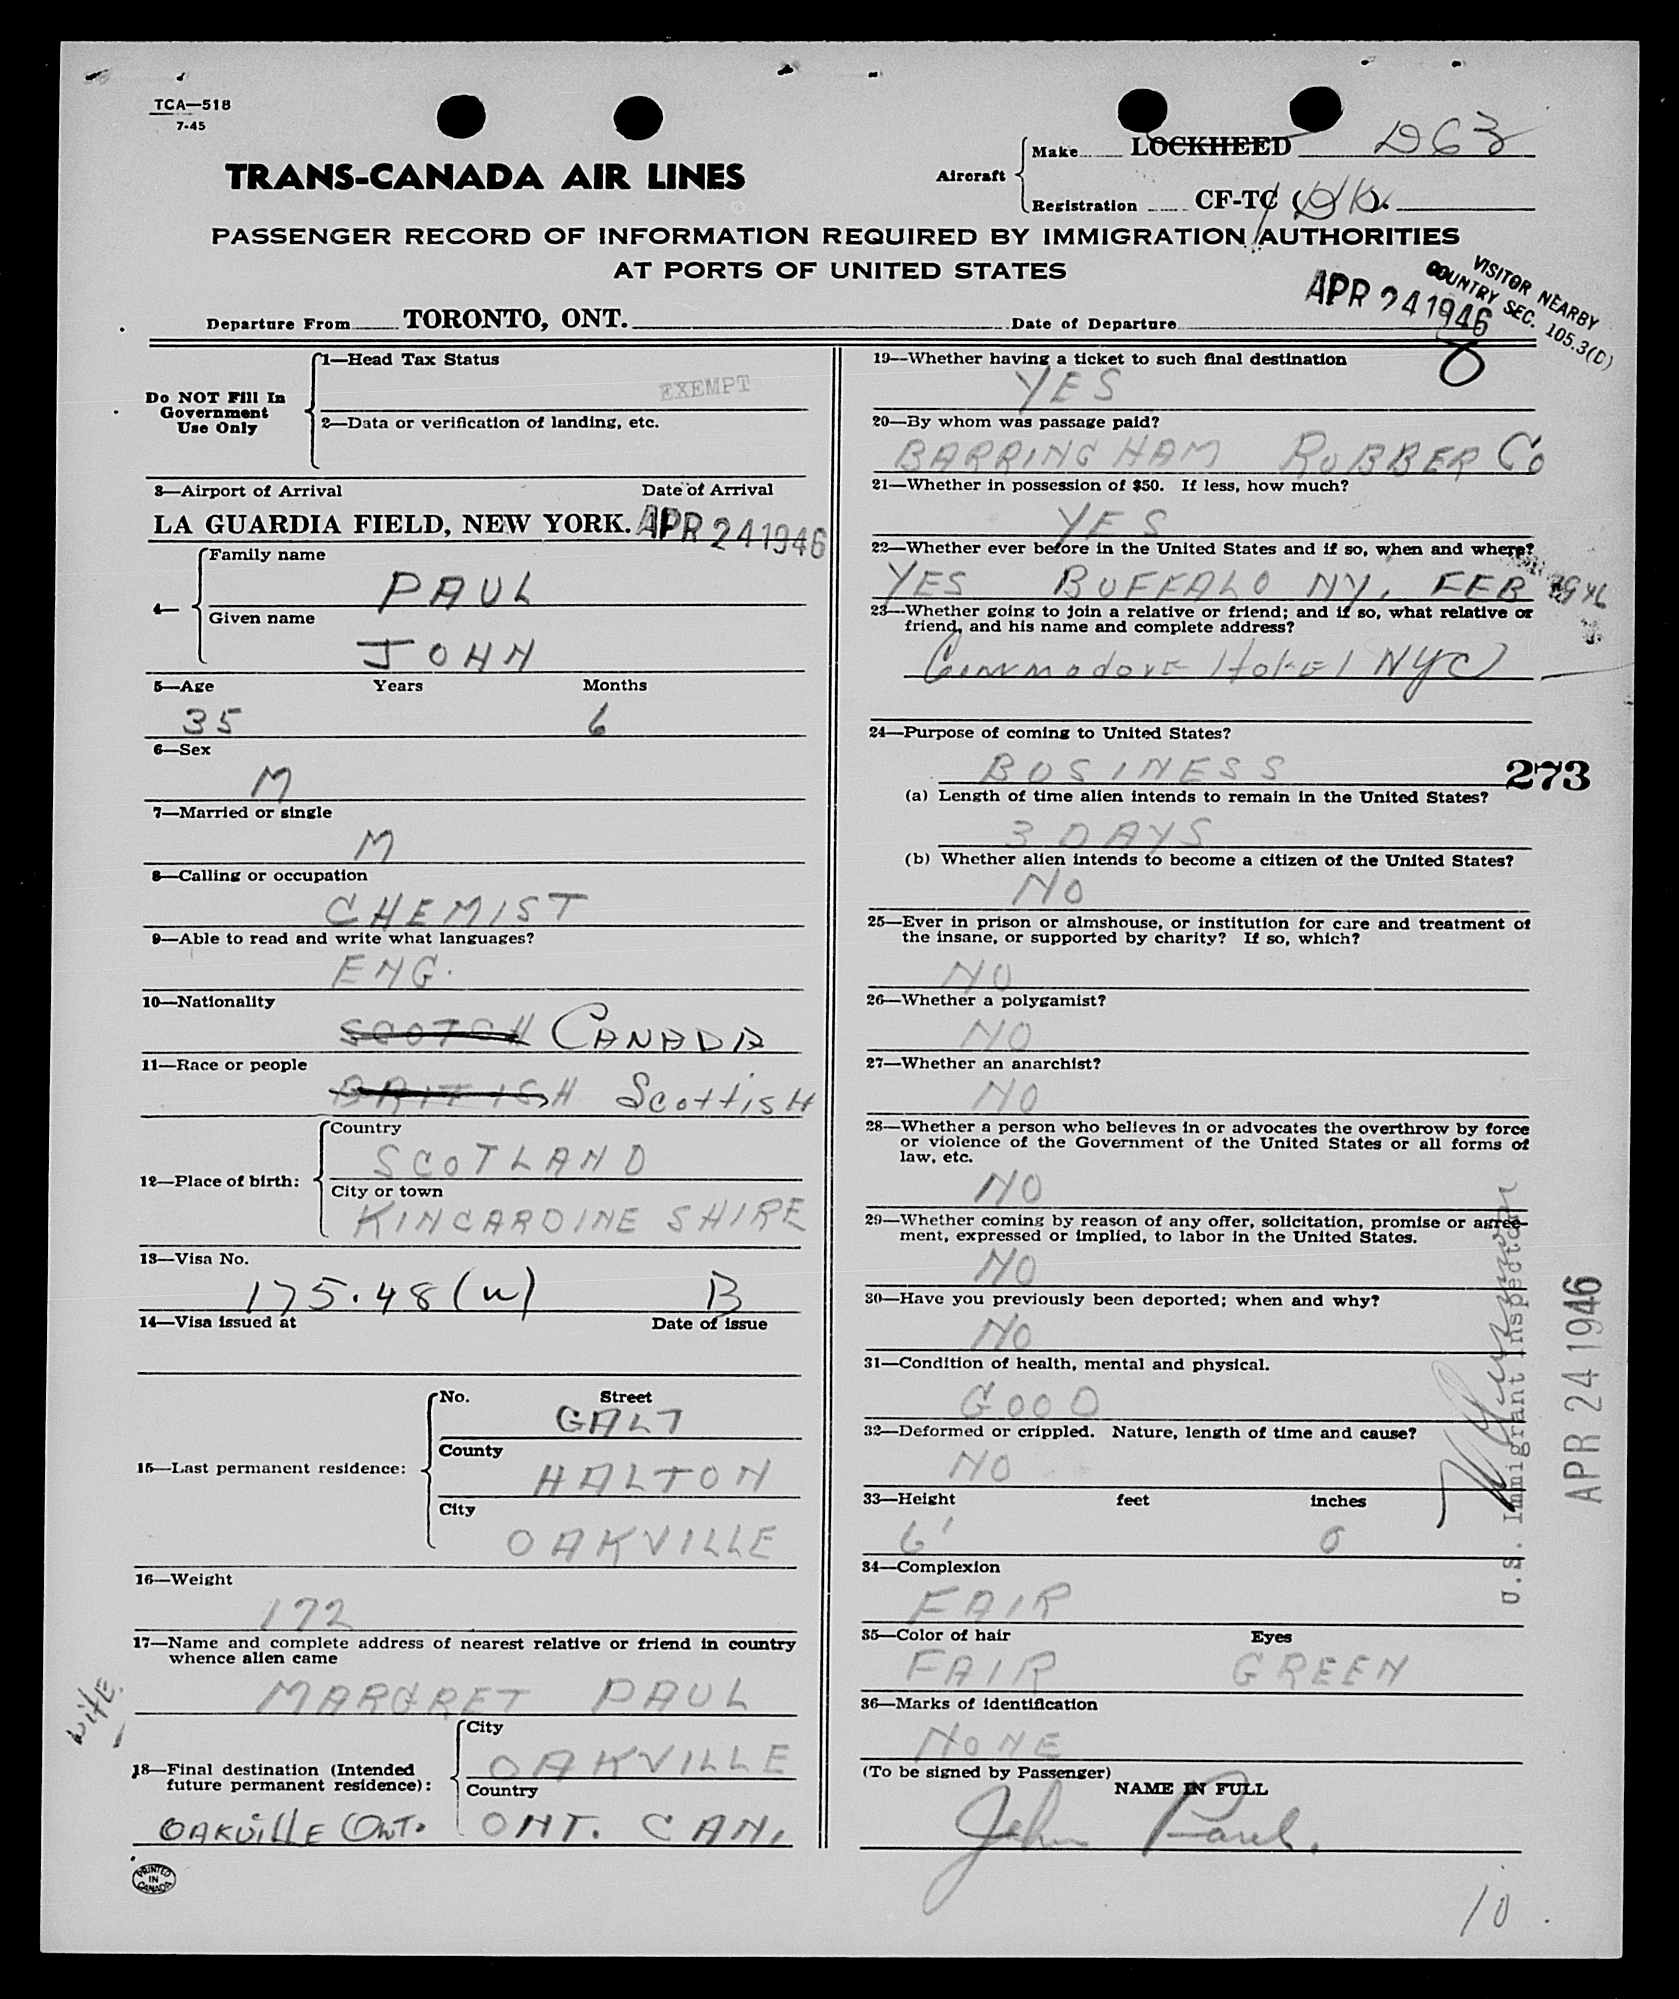 TCA—518
7-45
TRANS-CANADA AIR LINES
Aircraft
Make LOCKHEED DC3
Registration CF-TC
PASSENGER RECORD OF INFORMATION REQUIRED BY IMMIGRATION AUTHORITIES
AT PORTS OF UNITED STATES
VISITOR NEARBY
COUNTRY SEC. 105.3(D)
Departure From TORONTO, ONT. Date of Departure APR 24 1946
Do NOT Fill In
Government
Use Only
1—Head Tax Status
EXEMPT
2—Data or verification of landing, etc.
3—Airport of Arrival Date of Arrival
LA GUARDIA FIELD, NEW YORK. APR 24 1946
4—
Family name
PAUL
Given name
JOHN
5—Age Years Months
35 6
6—Sex
M
7—Married or single
M
8—Calling or occupation
CHEMIST
9—Able to read and write what languages?
ENG.
10—Nationality
SCOTCH CANADA
11—Race or people
BRITISH SCOTTISH
12—Place of birth:
Country
SCOTLAND
City or town
KINCARDINE SHIRE
13—Visa No.
175.48 (w) B
14—Visa issued at Date of issue
15—Last permanent residence:
No. Street
GALT
County
HALTON
City
OAKVILLE
16—Weight
172
17—Name and complete address of nearest relative or friend in country
whence alien came
wife.
MARGRET PAUL
18—Final destination (Intended
future permanent residence):
OAKVILLE ONT.
City
OAKVILLE
Country
ONT. CAN.
PRINTED
IN
CANADA
19—Whether having a ticket to such final destination
YES
20—By whom was passage paid?
BARRINGHAM RUBBER Co
21—Whether in possession of $50. If less, how much?
YES
22—Whether ever before in the United States and if so, when and where?
YES BUFFALO NY. FEB 1946
23—Whether going to join a relative or friend; and if so, what relative or
friend, and his name and complete address?
Commodore Hotel NYC
24—Purpose of coming to United States?
BUSINESS
273
(a) Length of time alien intends to remain in the United States?
3 DAYS
(b) Whether alien intends to become a citizen of the United States?
NO
25—Ever in prison or almshouse, or institution for care and treatment of
the insane, or supported by charity? If so, which?
NO
26—Whether a polygamist?
NO
27—Whether an anarchist?
NO
28—Whether a person who believes in or advocates the overthrow by force
or violence of the Government of the United States or all forms of
law, etc.
NO
29—Whether coming by reason of any offer, solicitation, promise or agree-
ment, expressed or implied, to labor in the United States.
NO
30—Have you previously been deported; when and why?
NO
31—Condition of health, mental and physical.
GOOD
32—Deformed or crippled. Nature, length of time and cause?
NO
33—Height feet inches
6' 0
34—Complexion
FAIR
35—Color of hair Eyes
FAIR GREEN
36—Marks of identification
NONE
(To be signed by Passenger)
NAME IN FULL
John Paul.
U.S. Immigrant Inspector
APR 24 1946
10